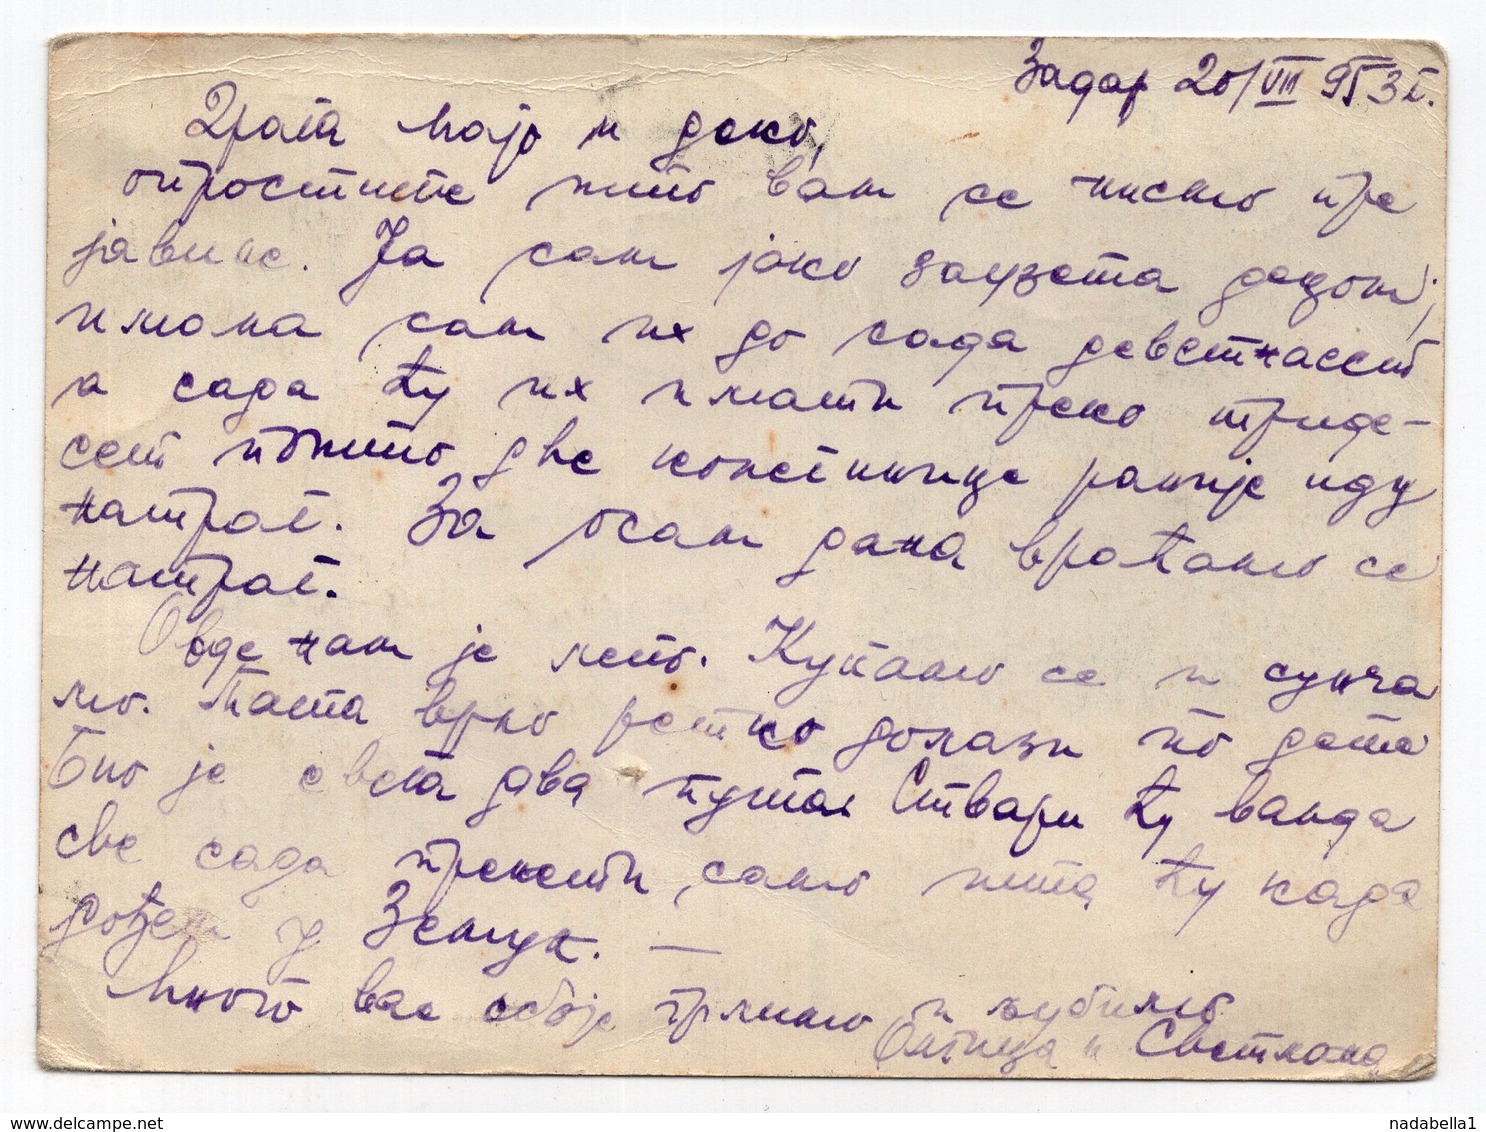 Задар 20/VIII 953 г.
Драга мајо и деко,
опростите што вам се нисмо пре
јавиле. Ја сам јако заузета децом;
имала сам их до сада деветнаест
а сада ћу их имати преко триде-
сет пошто две конетинице раније иду
натраг. За осам дана враћамо се
натраг.
Овде нам је лепо. Купамо се и сунча
мо. Тата врло ретко долази по дете
Био је свега два пута. Ствари ћу ванда
све сада пренети, само шта ћу када
дођем у Земун. —
Много вас обоје грлимо и љубимо
Олгица и Светлана
www.delcampe.net
nadabella1